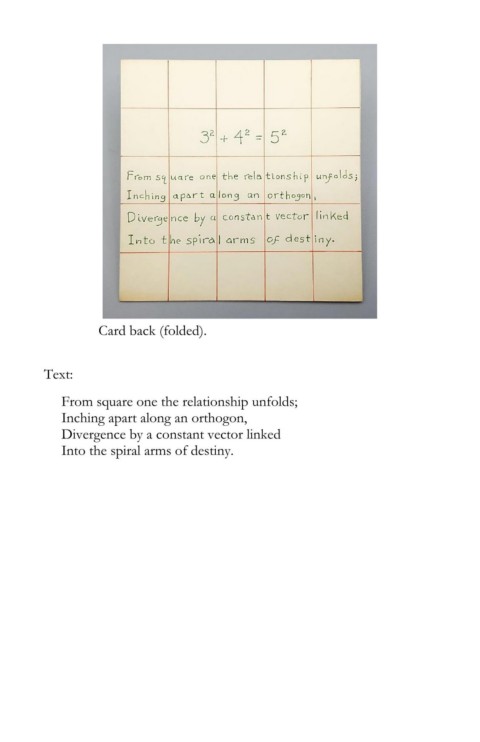 3² + 4² = 5²
From square one the relationship unfolds;
Inching apart along an orthogon,
Divergence by a constant vector linked
Into the spiral arms of destiny.
Card back (folded).
Text:
From square one the relationship unfolds;
Inching apart along an orthogon,
Divergence by a constant vector linked
Into the spiral arms of destiny.